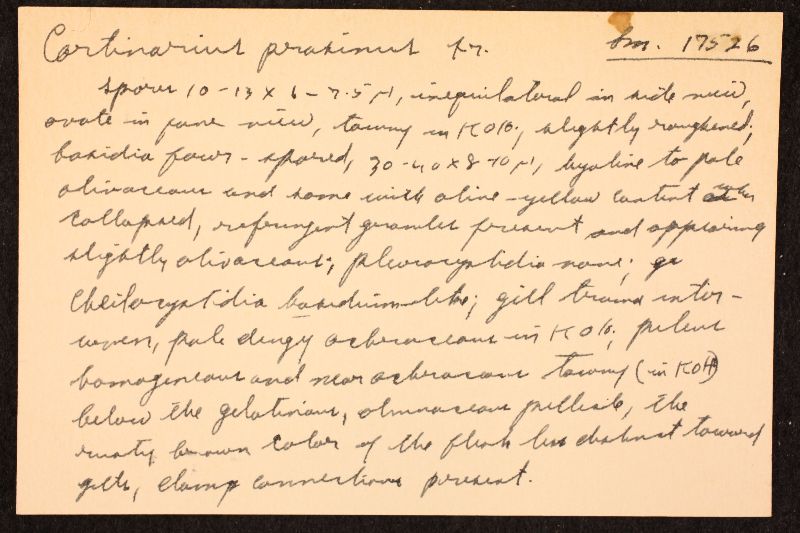 Cortinarius prasinus Fr. Sm. 17526
Spores 10-13 x 6-7.5 µ, inequilateral in side view,
ovate in face view, tawny in KOH; slightly roughened;
basidia four-spored, 30-40 x 8-10 µ, hyaline to pale
olivaceous and some with olive-yellow content when
collapsed, refringent granules present and appearing
slightly olivaceous; pleurocystidia none;
cheilocystidia basidium-like; gill trama inter-
woven, pale dingy ochraceous in KOH; pileus
homogeneous and near ochraceous tawny (in KOH)
below the gelatinous, olivaceous pellicle, the
rusty brown color of the flesh less distinct toward
gills, clamp connections present.